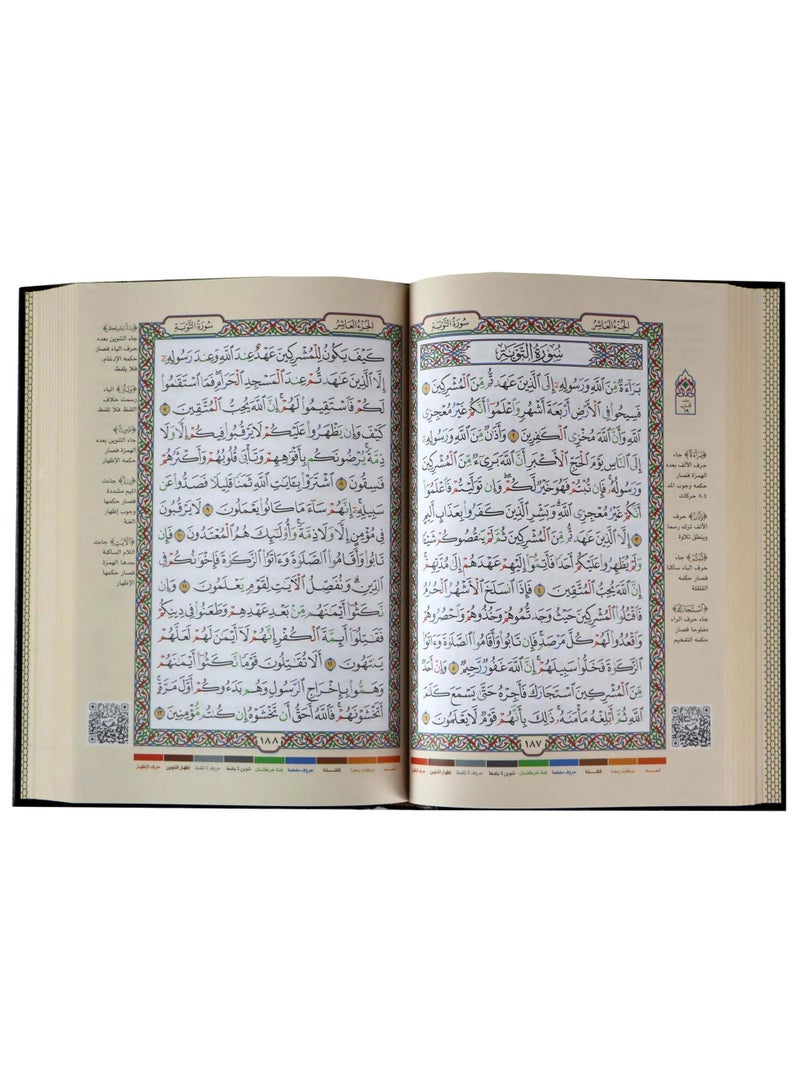 الجُزْءُ العَاشِرُ
سُورَةُ التَّوْبَةِ
سُورَةُ التَّوْبَةِ
بَرَآءَةٌ مِّنَ ٱللَّهِ وَرَسُولِهِۦٓ إِلَى ٱلَّذِينَ عَٰهَدتُّم مِّنَ ٱلْمُشْرِكِينَ ١
فَسِيحُوا۟ فِى ٱلْأَرْضِ أَرْبَعَةَ أَشْهُرٍ وَٱعْلَمُوٓا۟ أَنَّكُمْ غَيْرُ مُعْجِزِى
ٱللَّهِ وَأَنَّ ٱللَّهَ مُخْزِى ٱلْكَٰفِرِينَ ٢ وَأَذَٰنٌ مِّنَ ٱللَّهِ وَرَسُولِهِۦٓ
إِلَى ٱلنَّاسِ يَوْمَ ٱلْحَجِّ ٱلْأَكْبَرِ أَنَّ ٱللَّهَ بَرِىٓءٌ مِّنَ ٱلْمُشْرِكِينَ
وَرَسُولُهُۥ فَإِن تُبْتُمْ فَهُوَ خَيْرٌ لَّكُمْ وَإِن تَوَلَّيْتُمْ فَٱعْلَمُوٓا۟
أَنَّكُمْ غَيْرُ مُعْجِزِى ٱللَّهِ وَبَشِّرِ ٱلَّذِينَ كَفَرُوا۟ بِعَذَابٍ أَلِيمٍ
٣ إِلَّا ٱلَّذِينَ عَٰهَدتُّم مِّنَ ٱلْمُشْرِكِينَ ثُمَّ لَمْ يَنقُصُوكُمْ شَيْـًٔا
وَلَمْ يُظَٰهِرُوا۟ عَلَيْكُمْ أَحَدًا فَأَتِمُّوٓا۟ إِلَيْهِمْ عَهْدَهُمْ إِلَىٰ مُدَّتِهِمْ
إِنَّ ٱللَّهَ يُحِبُّ ٱلْمُتَّقِينَ ٤ فَإِذَا ٱنسَلَخَ ٱلْأَشْهُرُ ٱلْحُرُمُ
فَٱقْتُلُوا۟ ٱلْمُشْرِكِينَ حَيْثُ وَجَدتُّمُوهُمْ وَخُذُوهُمْ وَٱحْصُرُوهُمْ
وَٱقْعُدُوا۟ لَهُمْ كُلَّ مَرْصَدٍ فَإِن تَابُوا۟ وَأَقَامُوا۟ ٱلصَّلَوٰةَ وَءَاتَوُا۟
ٱلزَّكَوٰةَ فَخَلُّوا۟ سَبِيلَهُمْ إِنَّ ٱللَّهَ غَفُورٌ رَّحِيمٌ ٥ وَإِنْ أَحَدٌ
مِّنَ ٱلْمُشْرِكِينَ ٱسْتَجَارَكَ فَأَجِرْهُ حَتَّىٰ يَسْمَعَ كَلَٰمَ
ٱللَّهِ ثُمَّ أَبْلِغْهُ مَأْمَنَهُۥ ذَٰلِكَ بِأَنَّهُمْ قَوْمٌ لَّا يَعْلَمُونَ ٦
١٨٧
﴿بَرَآءَةٌ﴾ جاء
حرف الألف بعده
الهمزة فصار
حكمه وجوب المد
٤،٥ حركات
حرف
الألف ترك رسما
وينطق تلاوة
﴿تُبْتُمْ﴾ جاء
حرف الباء ساكنا
فصار حكمه
القلقلة
﴿ٱسْتَجَارَكَ﴾
جاء حرف الراء
مفتوحا فصار
حكمه التفخيم
المد
تركت رسما
قلقلة
حروف مفخمة
غنة حركتان
تنوين لا يلفظ
حروف لا تلفظ
إظهار التنوين
الجُزْءُ العَاشِرُ
سُورَةُ التَّوْبَةِ
كَيْفَ يَكُونُ لِلْمُشْرِكِينَ عَهْدٌ عِندَ ٱللَّهِ وَعِندَ رَسُولِهِۦٓ
إِلَّا ٱلَّذِينَ عَٰهَدتُّمْ عِندَ ٱلْمَسْجِدِ ٱلْحَرَامِ فَمَا ٱسْتَقَٰمُوا۟
لَكُمْ فَٱسْتَقِيمُوا۟ لَهُمْ إِنَّ ٱللَّهَ يُحِبُّ ٱلْمُتَّقِينَ ٧
كَيْفَ وَإِن يَظْهَرُوا۟ عَلَيْكُمْ لَا يَرْقُبُوا۟ فِيكُمْ إِلًّا وَلَا
ذِمَّةً يُرْضُونَكُم بِأَفْوَٰهِهِمْ وَتَأْبَىٰ قُلُوبُهُمْ وَأَكْثَرُهُمْ
فَٰسِقُونَ ٨ ٱشْتَرَوْا۟ بِـَٔايَٰتِ ٱللَّهِ ثَمَنًا قَلِيلًا فَصَدُّوا۟ عَن
سَبِيلِهِۦٓ إِنَّهُمْ سَآءَ مَا كَانُوا۟ يَعْمَلُونَ ٩ لَا يَرْقُبُونَ
فِى مُؤْمِنٍ إِلًّا وَلَا ذِمَّةً وَأُو۟لَٰٓئِكَ هُمُ ٱلْمُعْتَدُونَ ١٠ فَإِن
تَابُوا۟ وَأَقَامُوا۟ ٱلصَّلَوٰةَ وَءَاتَوُا۟ ٱلزَّكَوٰةَ فَإِخْوَٰنُكُمْ فِى
ٱلدِّينِ وَنُفَصِّلُ ٱلْـَٔايَٰتِ لِقَوْمٍ يَعْلَمُونَ ١١ وَإِن
نَّكَثُوٓا۟ أَيْمَٰنَهُم مِّنۢ بَعْدِ عَهْدِهِمْ وَطَعَنُوا۟ فِى دِينِكُمْ
فَقَٰتِلُوٓا۟ أَئِمَّةَ ٱلْكُفْرِ إِنَّهُمْ لَآ أَيْمَٰنَ لَهُمْ لَعَلَّهُمْ
يَنتَهُونَ ١٢ أَلَا تُقَٰتِلُونَ قَوْمًا نَّكَثُوٓا۟ أَيْمَٰنَهُمْ
وَهَمُّوا۟ بِإِخْرَاجِ ٱلرَّسُولِ وَهُم بَدَءُوكُمْ أَوَّلَ مَرَّةٍ
أَتَخْشَوْنَهُمْ فَٱللَّهُ أَحَقُّ أَن تَخْشَوْهُ إِن كُنتُم مُّؤْمِنِينَ ١٣
١٨٨
جاء التنوين بعده
حكمه الإدغام،
فلا يلفظ
الياء
رسمت خلاف
اللفظ، فلا تلفظ
جاء التنوين بعده
الهمزة فصار
حكمه الإظهار
جاءت
الميم مشددة
فصار حكمها
وجوب إظهار
الغنة
جاءت
اللام الساكنة
بعدها الهمزة
فصار حكمها
الإظهار
المد
تركت رسما
قلقلة
حروف مفخمة
غنة حركتان
تنوين لا يلفظ
حروف لا تلفظ
إظهار التنوين
حرف الإظهار